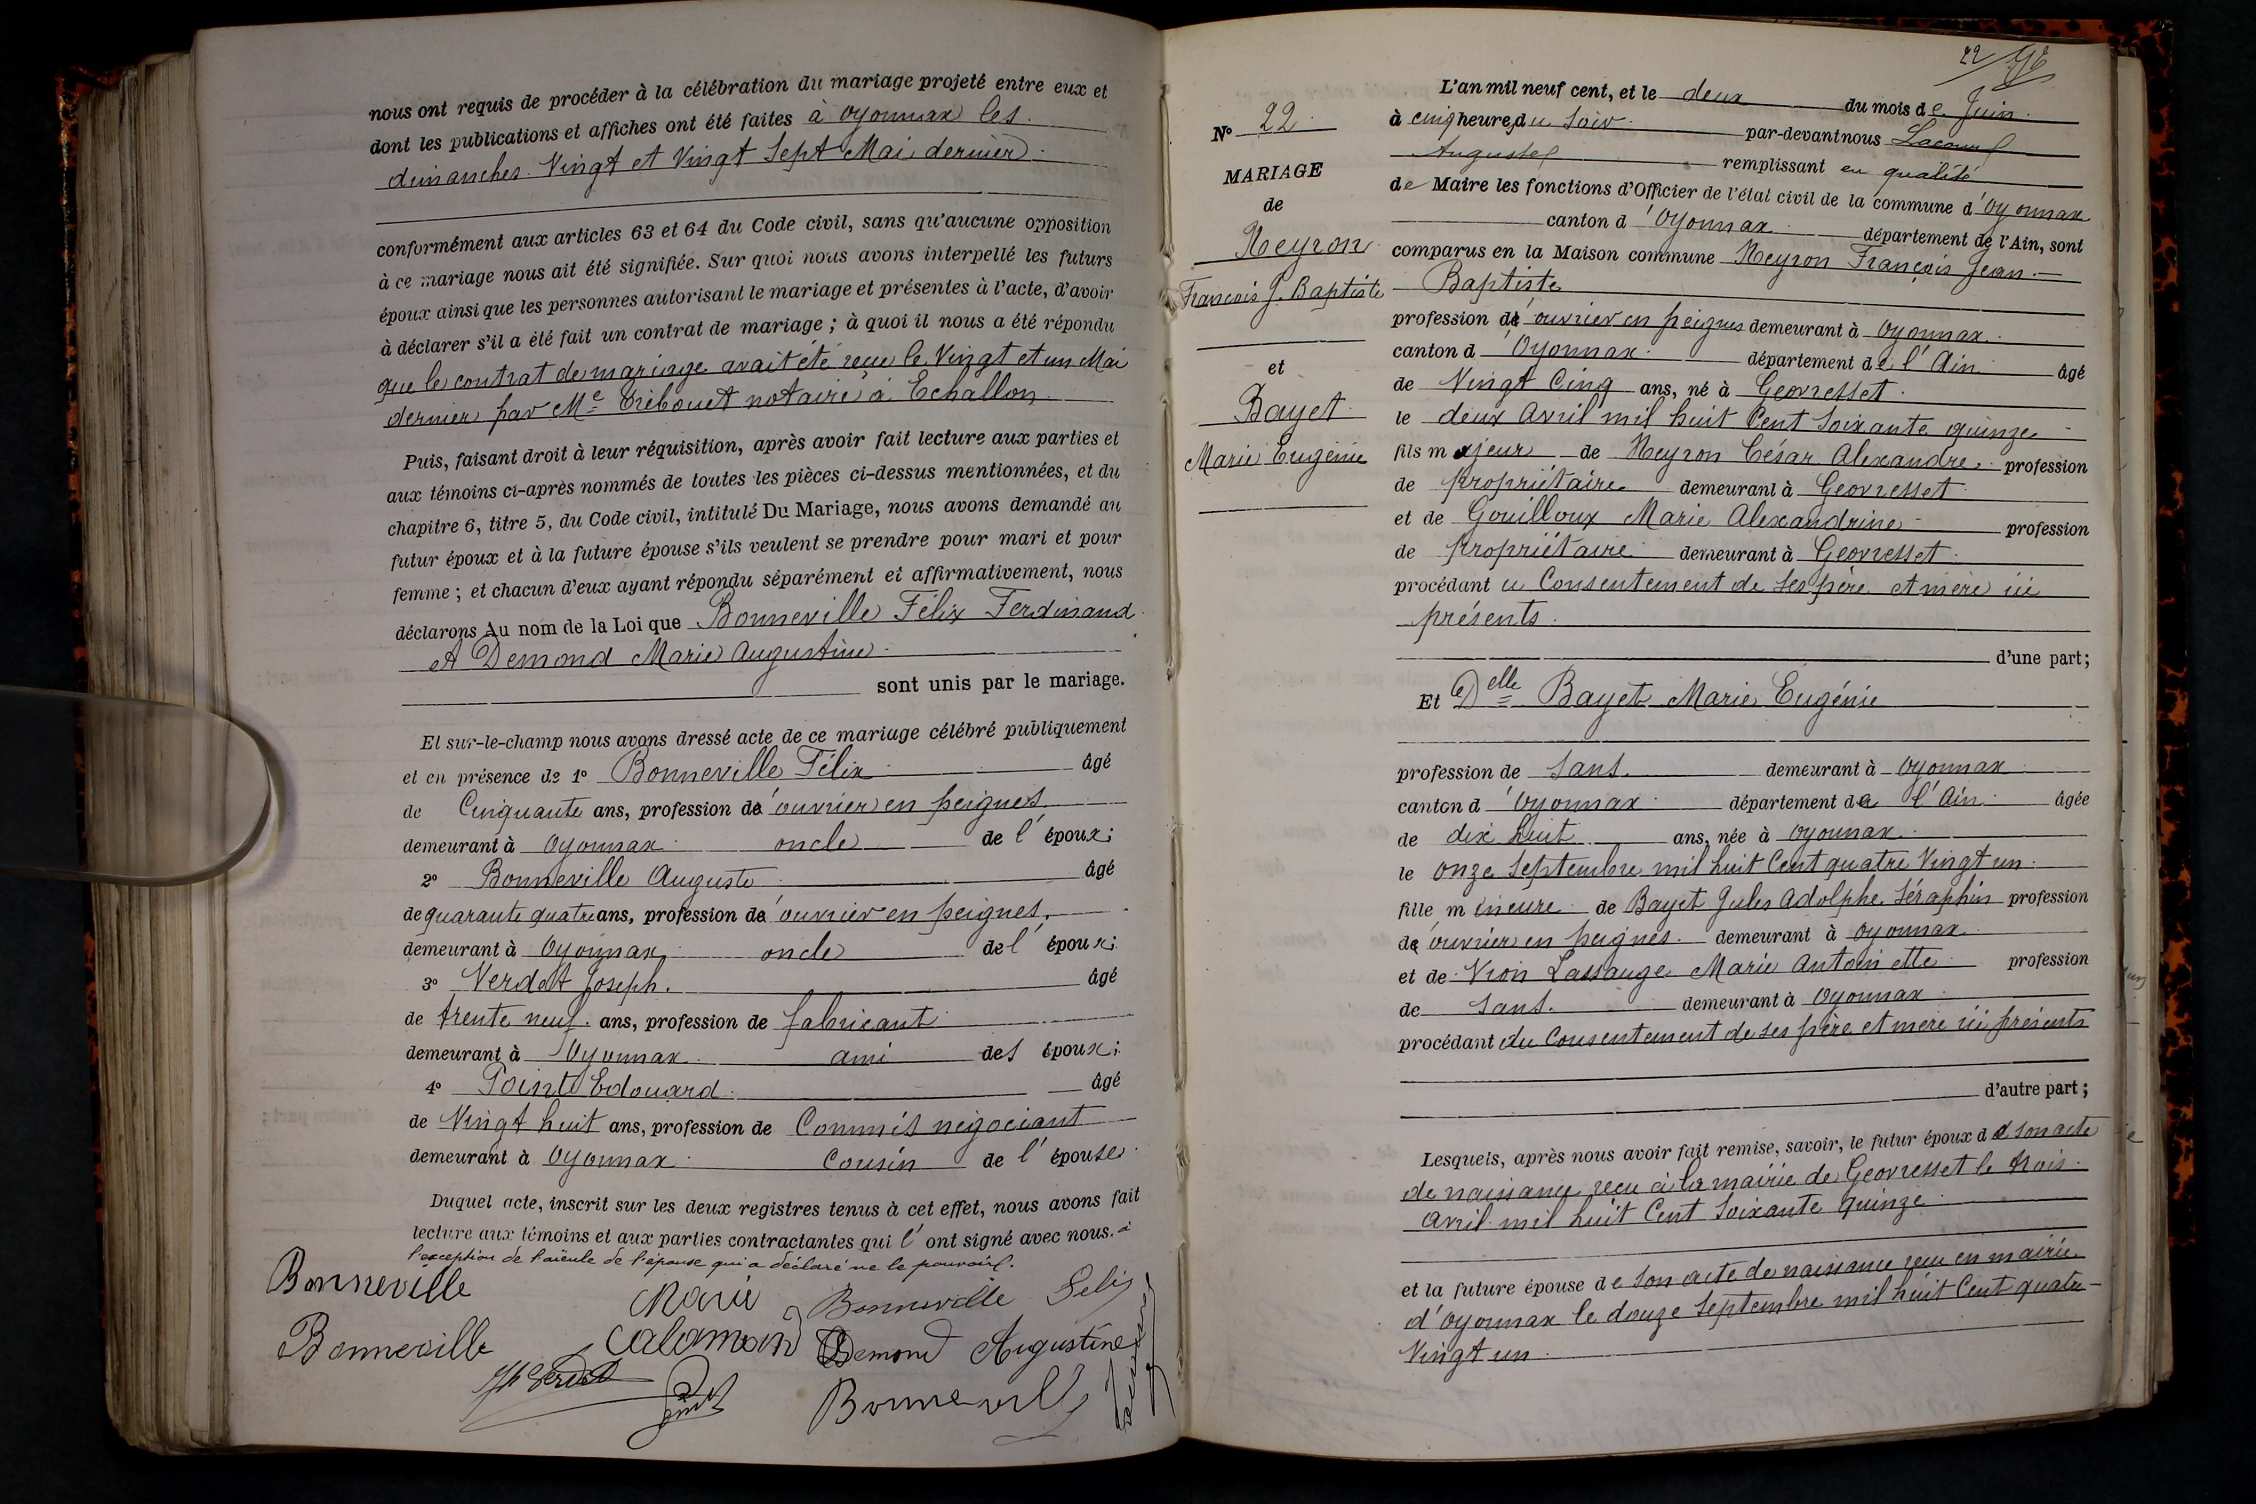 nous ont requis de procéder à la célébration du mariage projeté entre eux et
dont les publications et affiches ont été faites à Oyonnax les
dimanches Vingt et Vingt Sept Mai dernier
conformément aux articles 63 et 64 du Code civil, sans qu'aucune opposition
à ce mariage nous ait été signifiée. Sur quoi nous avons interpellé les futurs
époux ainsi que les personnes autorisant le mariage et présentes à l'acte, d'avoir
à déclarer s'il a été fait un contrat de mariage ; à quoi il nous a été répondu
que le contrat de mariage avait été reçu le Vingt et un Mai
dernier par Me Trébouet notaire à Echallon
Puis, faisant droit à leur réquisition, après avoir fait lecture aux parties et
aux témoins ci-après nommés de toutes les pièces ci-dessus mentionnées, et du
chapitre 6, titre 5, du Code civil, intitulé Du Mariage, nous avons demandé au
futur époux et à la future épouse s'ils veulent se prendre pour mari et pour
femme ; et chacun d'eux ayant répondu séparément et affirmativement, nous
déclarons Au nom de la Loi que Bonneville Félix Ferdinand
et Demond Marie Augustine
sont unis par le mariage.
Et sur-le-champ nous avons dressé acte de ce mariage célébré publiquement
et en présence de 1° Bonneville Félix âgé
de Cinquante ans, profession d'ouvrier en peignes
demeurant à Oyonnax oncle de l'époux ;
2° Bonneville Auguste âgé
de quarante quatre ans, profession d'ouvrier en peignes,
demeurant à Oyonnax oncle de l'époux ;
3° Verdet Joseph. âgé
de trente neuf ans, profession de fabricant
demeurant à Oyonnax ami des époux ;
4° Pointe Edouard âgé
de Vingt huit ans, profession de Commis négociant
demeurant à Oyonnax Cousin de l'épouse
Duquel acte, inscrit sur les deux registres tenus à cet effet, nous avons fait
lecture aux témoins et aux parties contractantes qui l'ont signé avec nous. à
l'exception de l'aïeule de l'épouse qui a déclaré ne le pouvoir.
Bonneville
Marie Bonneville Felix
Bonneville Calamand Demond Augustine
Bonneville
22
L'an mil neuf cent, et le deux du mois de Juin
N° 22
à cinq heures du soir par-devant nous
Auguste remplissant en qualité
MARIAGE
de Maire les fonctions d'Officier de l'état civil de la commune d'Oyonnax
de
canton d'Oyonnax département de l'Ain, sont
Neyron
comparus en la Maison commune Neyron François Jean
François J. Baptiste
Baptiste
profession d'ouvrier en peignes demeurant à Oyonnax
et
canton d'Oyonnax département de l'Ain âgé
de Vingt Cinq ans, né à Geovresset
Bayet
le deux Avril mil huit Cent Soixante quinze
Marie Eugénie
fils majeur de Neyron César Alexandre, profession
de propriétaire demeurant à Geovresset
et de Gouilloux Marie Alexandrine profession
de propriétaire demeurant à Geovresset
procédant du Consentement de ses père et mère ici
présents
d'une part ;
Et Delle Bayet Marie Eugénie
profession de sans demeurant à Oyonnax
canton d'Oyonnax département de l'Ain âgée
de dix huit ans, née à Oyonnax
le onze Septembre mil huit Cent quatre Vingt un
fille mineure de Bayet Jules Adolphe Séraphin profession
d'ouvrier en peignes demeurant à Oyonnax
et de Vion Lassauge Marie Antoinette profession
de sans. demeurant à Oyonnax
procédant du Consentement de ses père et mère ici présents
d'autre part ;
Lesquels, après nous avoir fait remise, savoir, le futur époux de son acte
de naissance reçu à la mairie de Geovresset le trois
avril mil huit Cent Soixante quinze
et la future épouse de son acte de naissance reçu en mairie
d'Oyonnax le douze Septembre mil huit Cent quatre
Vingt un